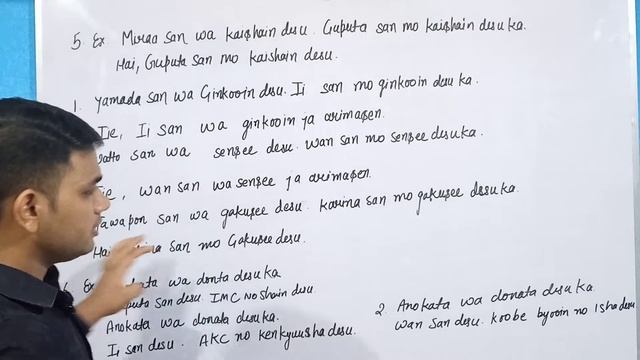 5. Ex Miraa san wa kaishain desu. Guputa san mo kaishain desu ka.
Hai, Guputa san mo kaishain desu.
1. Yamada san wa Ginkooin desu. Ii san mo ginkooin desu ka.
Iie, Ii san wa ginkooin ja arimasen.
watto san wa sensee desu. wan san mo sensee desu ka.
wan san wa sensee ja arimasen.
Tawapon san wa gakusee desu. Karina san mo gakusee desu ka.
Hai, san mo Gakusee desu.
Ex wa donta desu ka
san desu. IMC no shain desu.
Anokata wa donata desu ka.
Ii san desu. AKC no kenkyuusha desu.
2. Anokata wa donata desu ka.
wan san desu. koobe byooin no isha desu